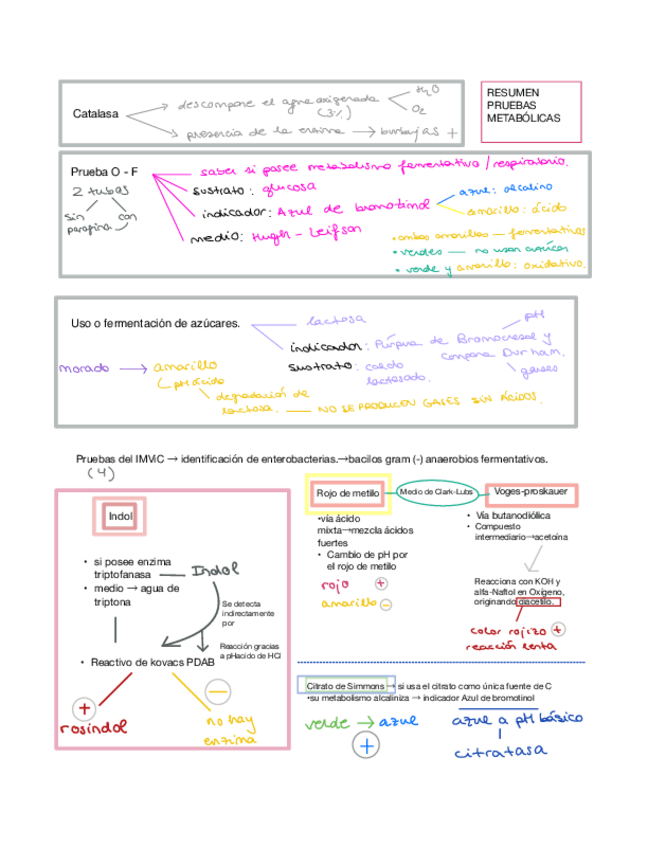 RESUMEN
PRUEBAS
METABÓLICAS
Catalasa
descompone el agua oxigenada
(3%)
H2O
O2
presencia de la enzima → burbujas +
Prueba O - F
2 tubos
sin
parafina
con
saber si posee metabolismo fermentativo / respiratorio.
sustrato: glucosa
indicador: Azul de bromotimol
azul: alcalino
amarillo: ácido
medio: Hugh - Leifson
• ambos amarillos — fermentativas
• verdes — no usan azúcar
• verde y amarillo: oxidativo.
Uso o fermentación de azúcares.
lactosa
pH
indicador: Púrpura de Bromocresol y
campana Durham.
gases
sustrato: caldo
lactosado.
morado → amarillo
pH ácido
degradación de
lactosa. — NO SE PRODUCEN GASES SIN ÁCIDOS.
Pruebas del IMViC → identificación de enterobacterias.→bacilos gram (-) anaerobios fermentativos.
(4)
Indol
• si posee enzima
triptofanasa — Indol
• medio → agua de
triptona
Se detecta
indirectamente
por
Reacción gracias
a pHacido de HCl
• Reactivo de kovacs PDAB
+
rosindol
−
no hay
enzima
Rojo de metilo
Medio de Clark-Lubs
Voges-proskauer
•vía ácido
mixta→mezcla ácidos
fuertes
• Cambio de pH por
el rojo de metilo
rojo +
amarillo −
• Vía butanodiólica
• Compuesto
intermediario→acetoína
Reacciona con KOH y
alfa-Naftol en Oxígeno,
originando diacetilo.
color rojizo +
reacción lenta
Citrato de Simmons → si usa el citrato como única fuente de C
•su metabolismo alcaliniza → indicador Azul de bromotinol
verde → azul
+
azul a pH básico
citratasa